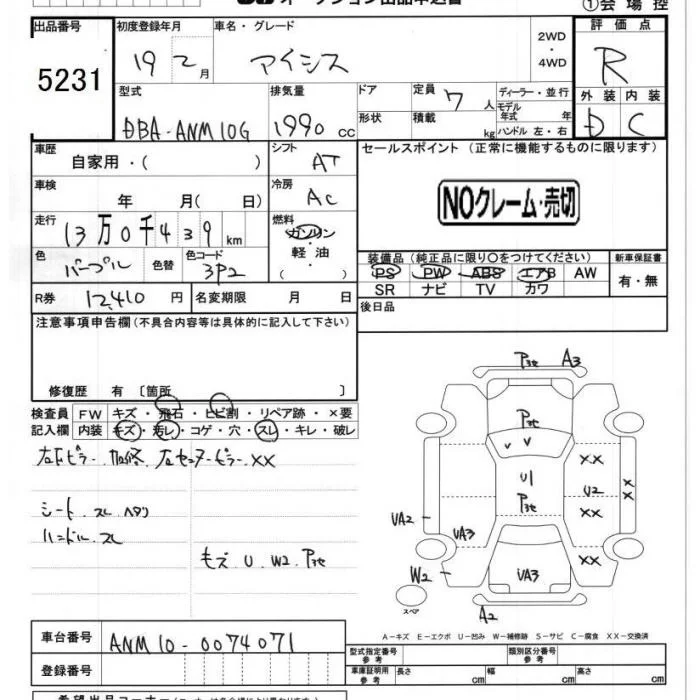 ①会場控
出品番号 初度登録年月 車名・グレード 評価点
5231 19 2月 アイシス 2WD・4WD R
型式 排気量 ドア 定員 7人 ディーラー・並行 外装 内装
DBA-ANM10G 1990cc 形状 積載 kg モデル年式 年 ハンドル 左・右 D C
車歴 自家用・( ) シフト AT セールスポイント(正常に機能するものに限ります)
車検 年 月( 日) 冷房 AC NOクレーム・売切
走行 13万0千439km 燃料 ガソリン・軽油・( )
色 パープル 色替 色コード 3P2 装備品(純正品に限り○をつけてください) 新車保証書
PS PW ABS エアB AW 有・無
SR ナビ TV カワ
R券 12,410円 名変期限 月 日 後日品
注意事項申告欄(不具合内容等は具体的に記入して下さい)
修復歴 有〔箇所 〕
検査員 FW キズ・飛石・ヒビ割・リペア跡・×要
記入欄 内装 キズ・汚レ・コゲ・穴・スレ・キレ・破レ
シート.スレ ヘタリ
ハンドル.スレ
キズ U W2 Pｺｾ
Pｺｾ A3
Pｺｾ
U1
Pｺｾ
XX
U2
XX
XX
XX
UA2
UA3
W2
スペア
A2
A-キズ E-エクボ U-凹み W-補修跡 S-サビ C-腐食 XX-交換済
車台番号 ANM10-0074071
型式指定番号 参考 類別区分番号 参考
登録番号 車庫証明用 参考 長さ cm 幅 cm 高さ cm